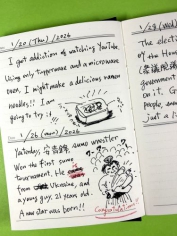 1/20 (Thu) /2026
I got addiction of watching YouTube.
Using only tupperware and a microwave
oven, I might make a delicious ramen
noodles!! I am
going to try it
1/26 (mon) /2026
Yesterday, sumo wrestler
Won the first sumo
tournament. He
from Ukraine, and
a young guy, 21 years old
A new star was born!!
Congratulations!!
1/28 (Wed)
The electi
of the Ho
government
on it. G
people, an
Just a li